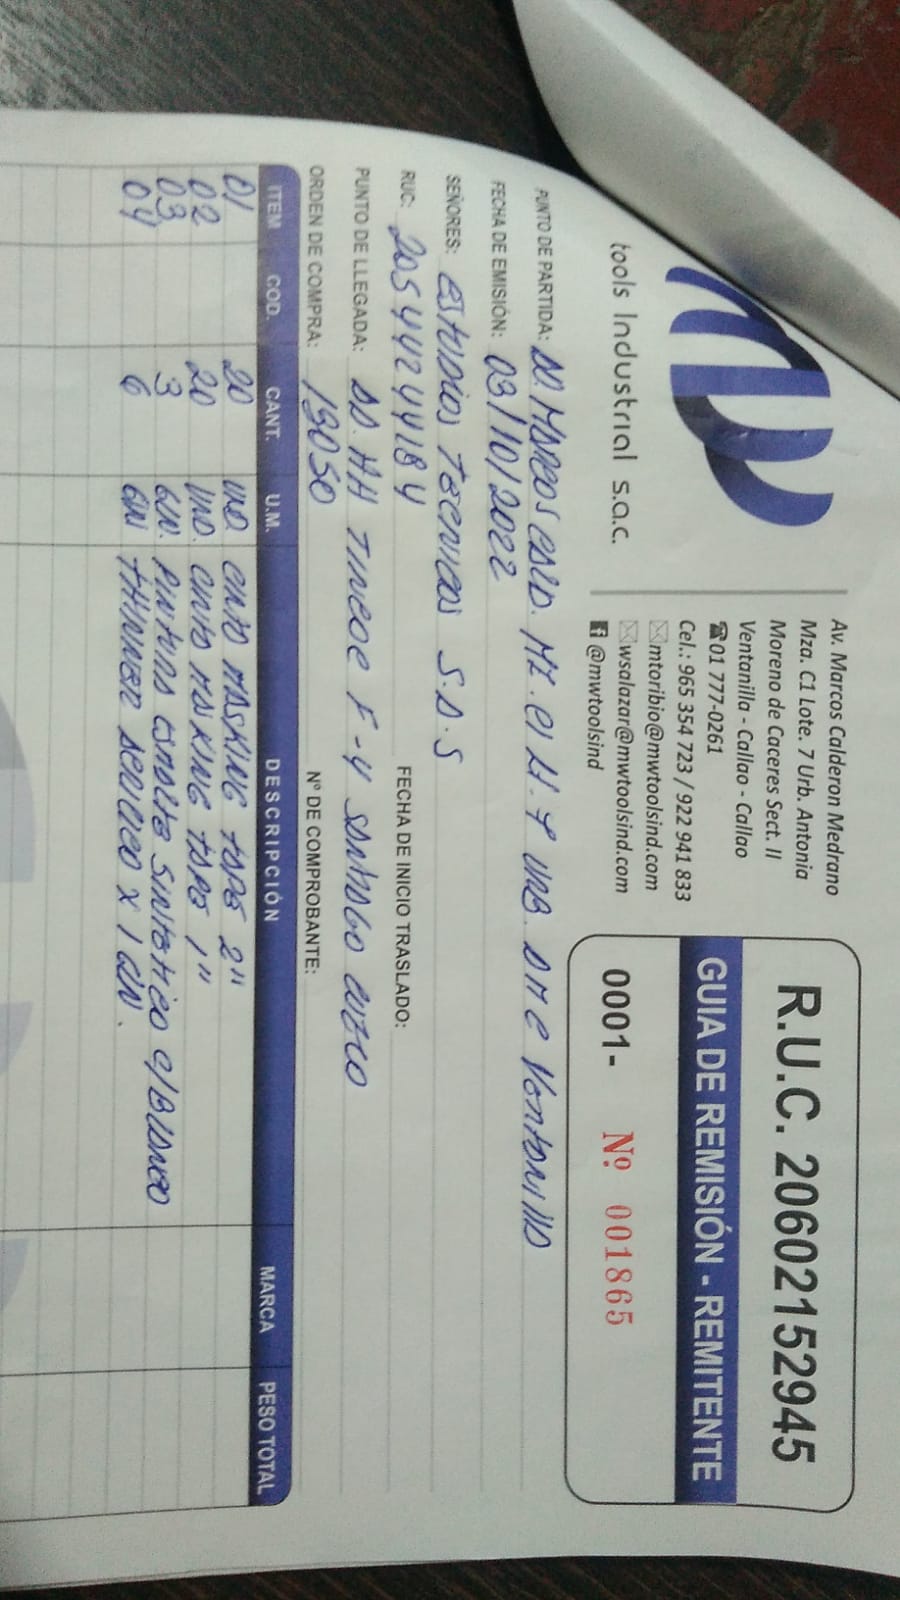 tools Industrial s.a.c.
Av. Marcos Calderon Medrano
Mza. C1 Lote. 7 Urb. Antonia
Moreno de Caceres Sect. II
Ventanilla - Callao - Callao
☎01 777-0261
Cel.: 965 354 723 / 922 941 833
mtoribio@mwtoolsind.com
wsalazar@mwtoolsind.com
@mwtoolsind
R.U.C. 20602152945
GUIA DE REMISIÓN - REMITENTE
0001- Nº 001865
PUNTO DE PARTIDA: AV. MARCOS CALD. MZ. C1 LT. 7 URB. AMC Ventanilla
FECHA DE EMISIÓN: 03/10/2022
SEÑORES: Estudios Tecnicos S.A.S
RUC: FECHA DE INICIO TRASLADO:
PUNTO DE LLEGADA: AA. HH F-4 SANTIAGO
ORDEN DE COMPRA: Nº DE COMPROBANTE:
ITEM COD. CANT. U.M. DESCRIPCIÓN MARCA PESO TOTAL
01 20 UND. CINTA MASKING TAPE 2"
02 20 UND. CINTA MASKING TAPE 1"
03 3 GLN. PINTURA ESMALTE SINTETICO C/BLANCO
04 6 GLN THINNER ACRILICO X 1 GLN.